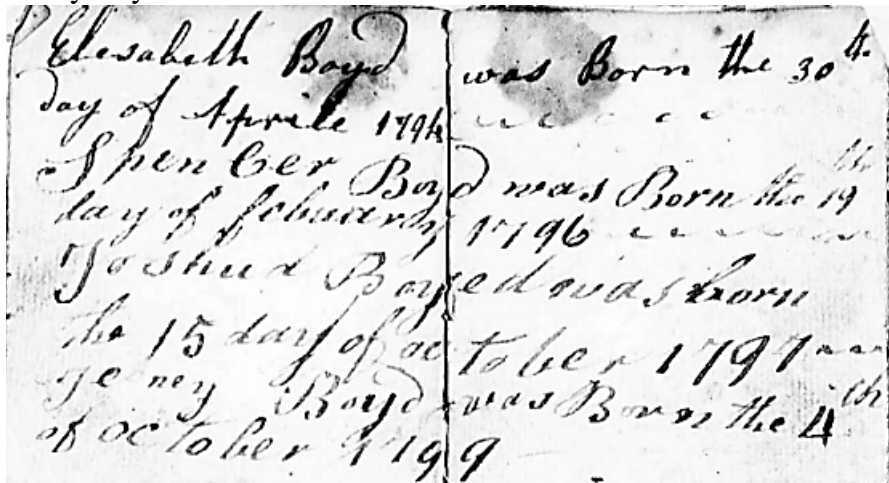 Elesabeth Boyd was Born the 30th
day of Aprile 1794
Spencer Boyd was Born the 19th
day of febuary 1796
Joshua Boyed was born
the 15 day of october 1797
Jenney Boyd was Born the 4th
of october 1799